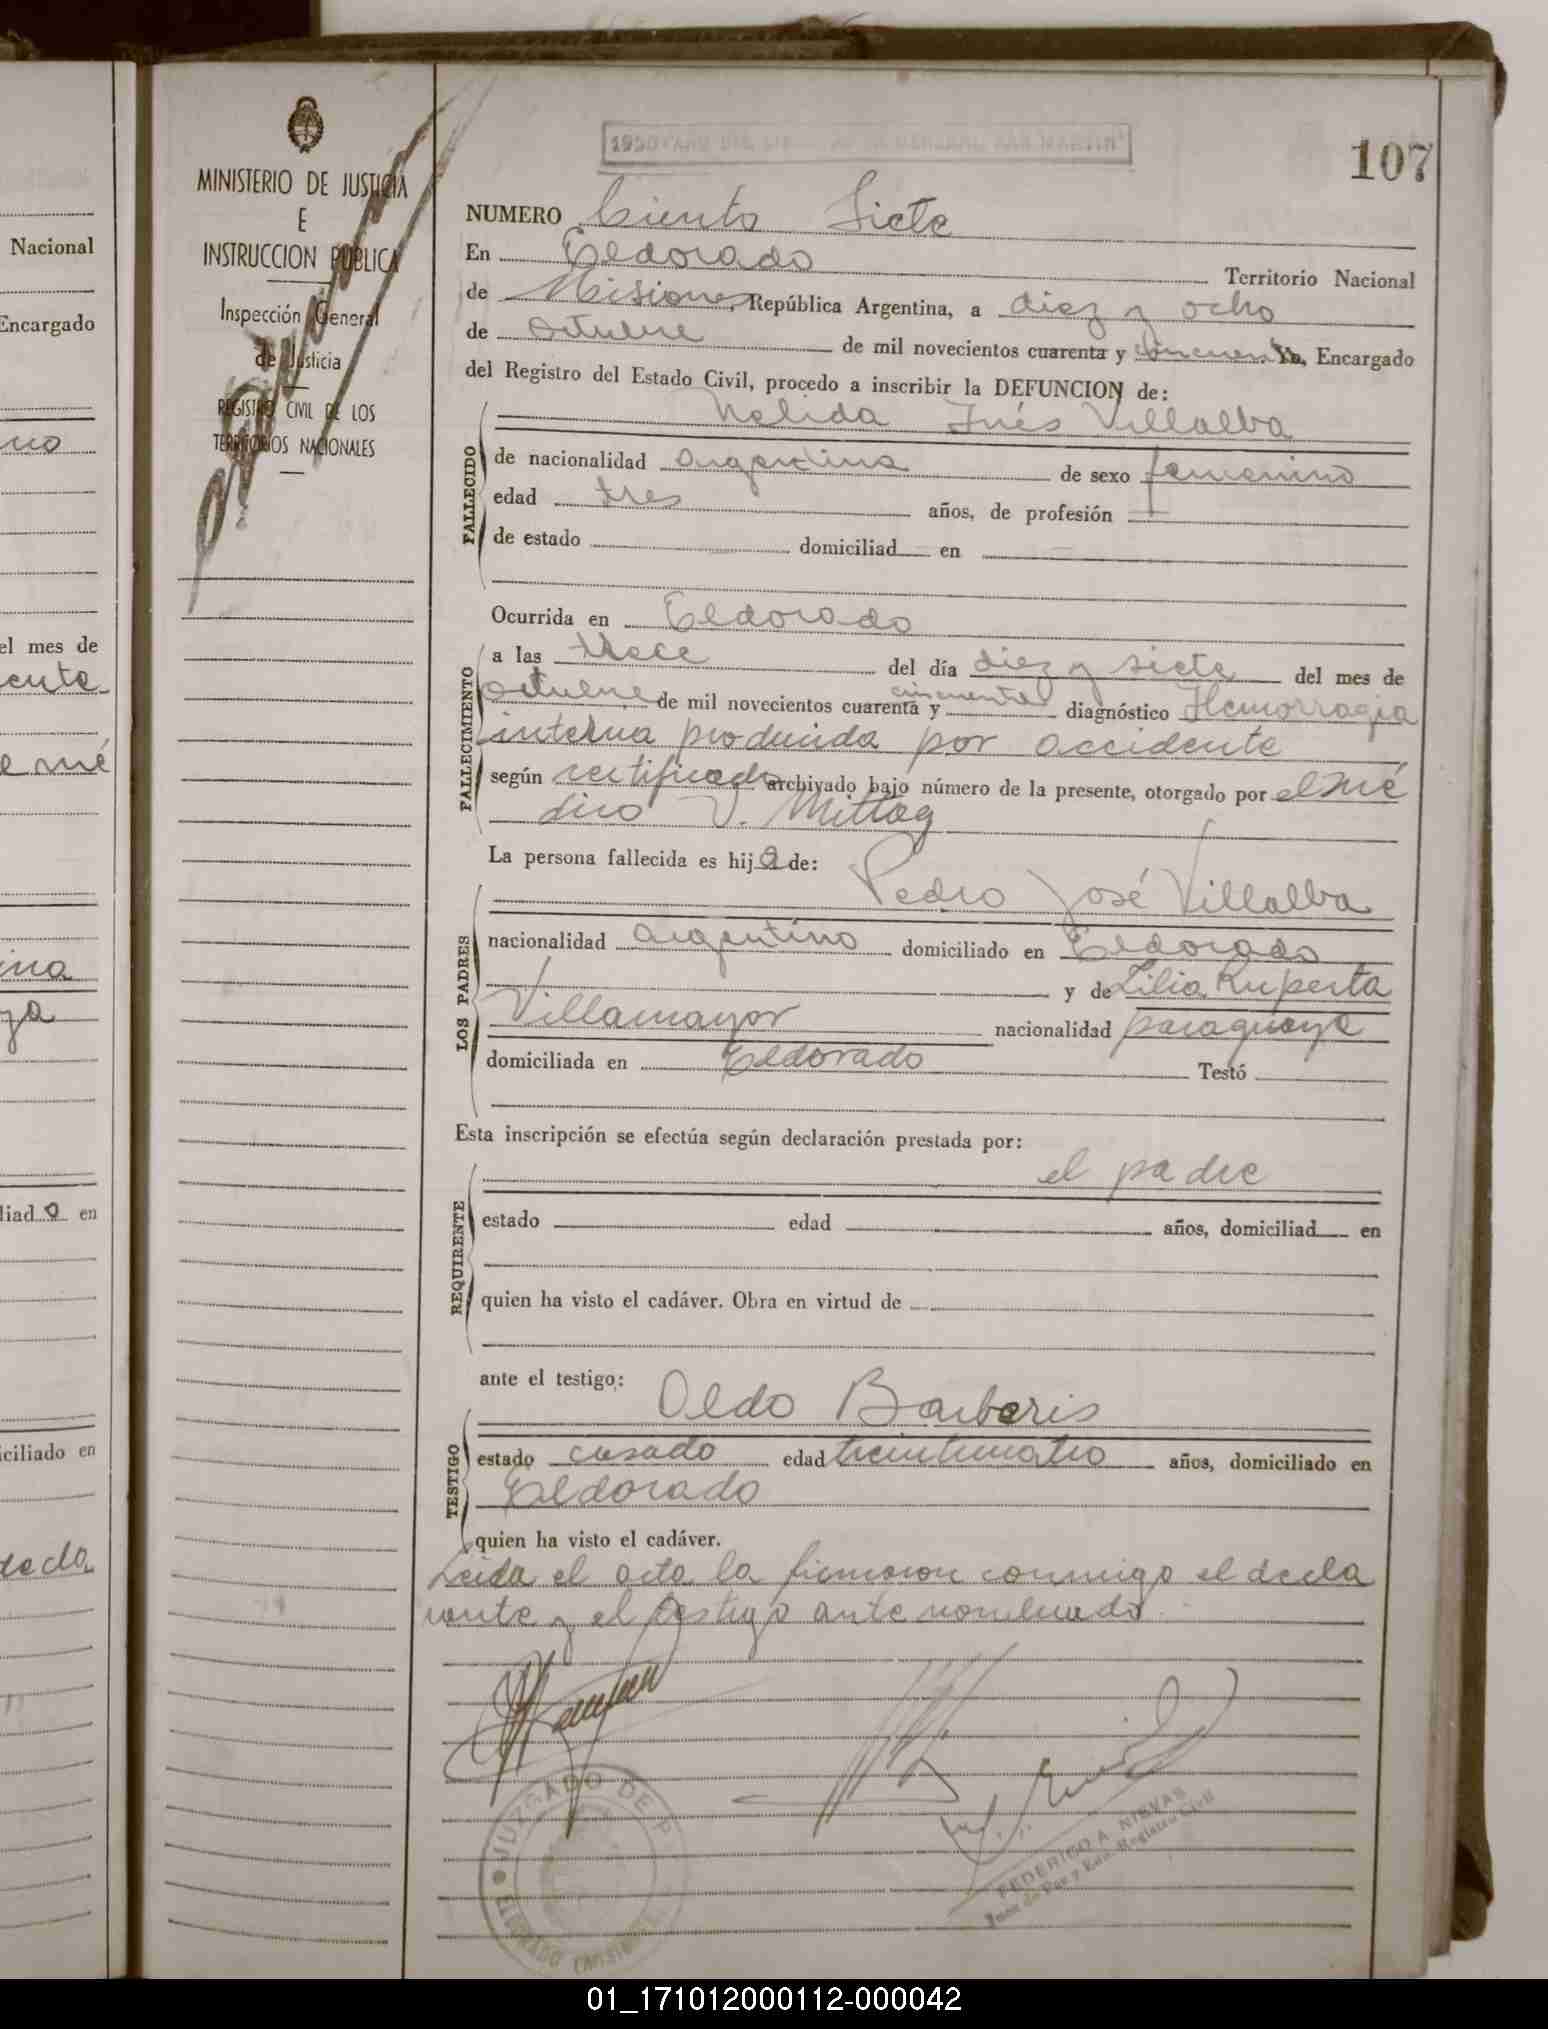 Nacional
Encargado
el mes de
liad o en
iciliado en
MINISTERIO DE JUSTICIA
E
INSTRUCCION PUBLICA
Inspección General
de Justicia
REGISTRO CIVIL DE LOS
TERRITORIOS NACIONALES
107
NUMERO Ciento Siete
En Eldorado Territorio Nacional
de Misiones, República Argentina, a diez y ocho
de octubre de mil novecientos cuarenta y cincuenta Yo, Encargado
del Registro del Estado Civil, procedo a inscribir la DEFUNCION de:
Nelida Inés Villalba
FALLECIDO
de nacionalidad argentina de sexo femenino
edad tres años, de profesión
de estado domiciliad en
Ocurrida en Eldorado
FALLECIMIENTO
a las trece del día diez y siete del mes de
octubre de mil novecientos cuarenta y cincuenta diagnóstico Hemorragia
interna producida por accidente
según certificado archivado bajo número de la presente, otorgado por el mé
dico V. Mittag
La persona fallecida es hija de:
Pedro José Villalba
LOS PADRES
nacionalidad argentino domiciliado en Eldorado
y de Lilia Ruperta
Villamayor nacionalidad paraguaya
domiciliada en Eldorado Testó
Esta inscripción se efectúa según declaración prestada por:
el padre
REQUIRENTE
estado edad años, domiciliad en
quien ha visto el cadáver. Obra en virtud de
ante el testigo:
Oldo Barberis
TESTIGO
estado casado edad treinticuatro años, domiciliado en
Eldorado
quien ha visto el cadáver.
Leida el acta la firmaron conmigo el decla
rante y el testigo ante nombrado
JUZGADO DE P
ELDORADO (MISIONES)
FEDERICO A. NIEVAS
Juez de Paz y Enc. Registro Civil
01_171012000112-000042